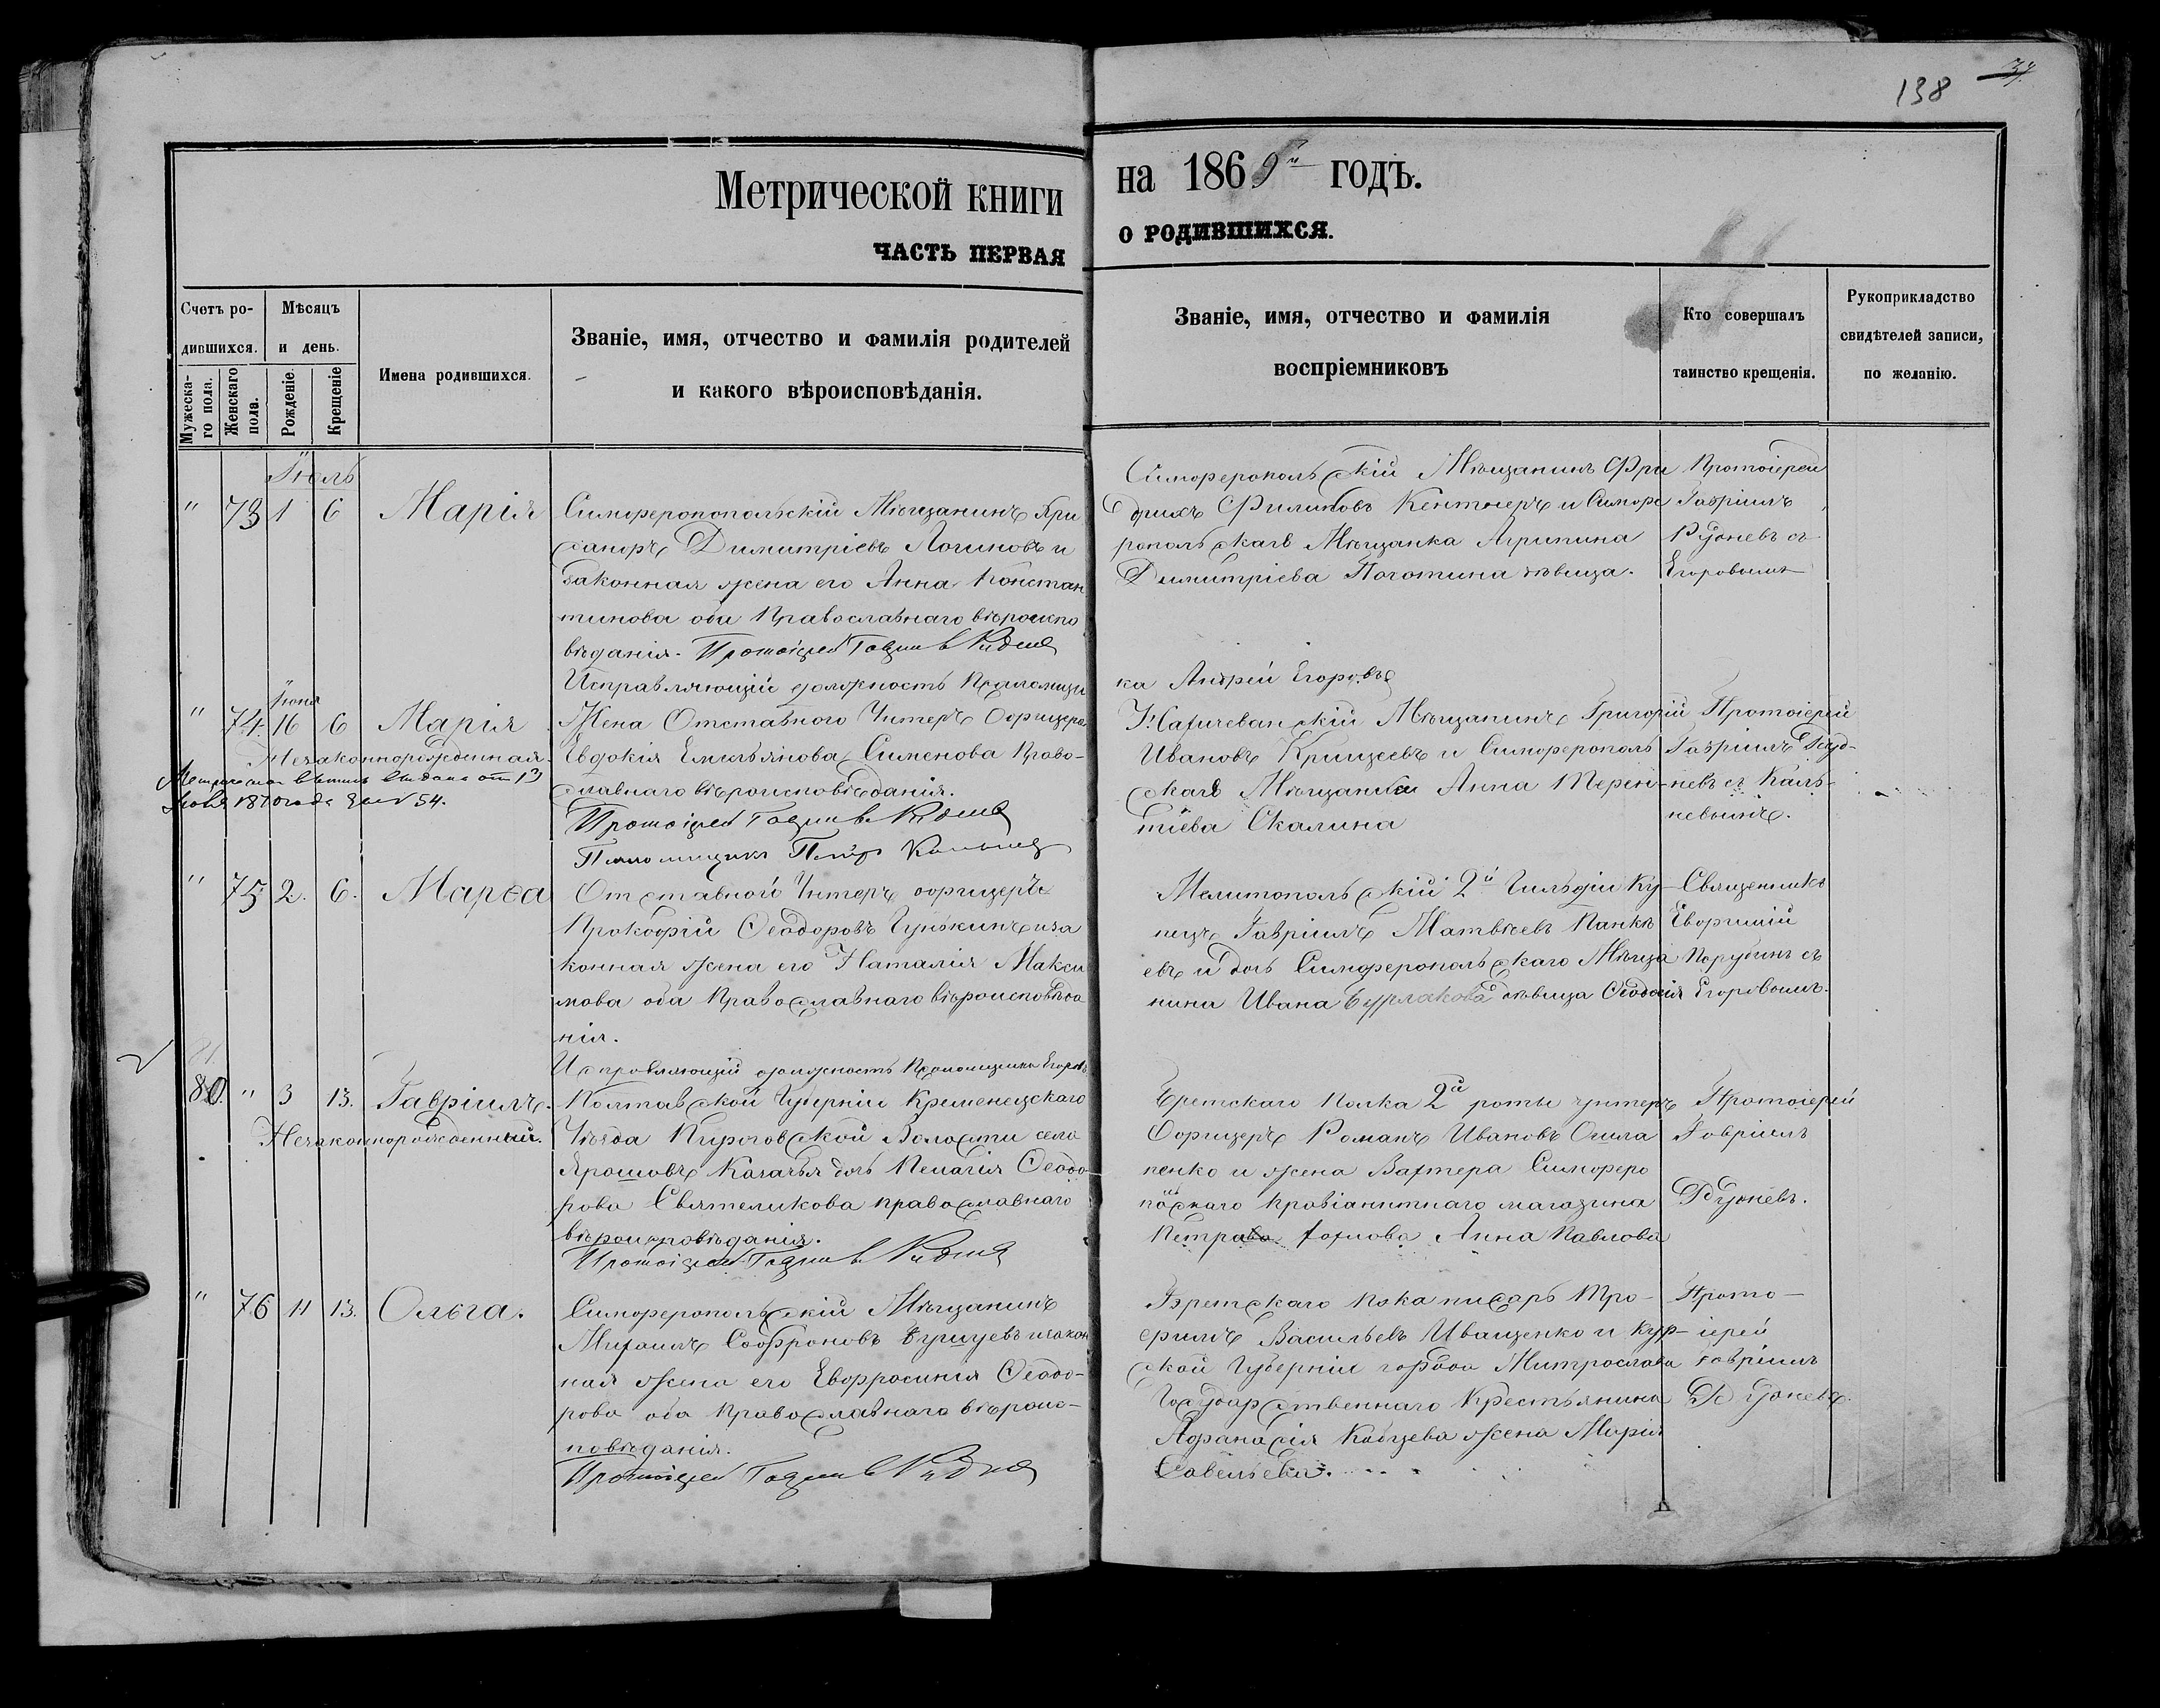 138 37.
Метрической книги на 1869й годъ.
ЧАСТЬ ПЕРВАЯ О РОДИВШИХСЯ.
Счетъ ро-
дившихся.
Мужеска-
го пола.
Женскаго
пола.
Мѣсяцъ
и день.
Рожденіе.
Крещеніе
Имена родившихся.
Званіе, имя, отчество и фамилія родителей
и какого вѣроисповѣданія.
Званіе, имя, отчество и фамилія
воспріемниковъ
Кто совершалъ
таинство крещенія.
Рукоприкладство
свидѣтелей записи,
по желанію.
Іюль
" 73 1 6 Марія
Симферопопольскій Мѣщанинъ Хри
санфъ Димитріевъ Логиновъ и
законная жена его Анна Констан
тинова оба Православнаго вѣроиспо
вѣданія. Протоіерей Гавріилъ Руднев
Исправляющій должность Псаломщи
Симферопольскій Мѣщанинъ Фри
дрихъ Филиповъ Кентнеръ и Симфе
ропольская Мѣщанка Агрипина
Димитріева девица.
ка Андрей Егоровъ
Протоіерей
Гавріилъ
Рудневъ съ
Егоровымъ
Іюня
" 74. 16 6 Марія
Незаконнорожденная.
выдано от 13
1870 года за № 54.
Жена Отставного Унтеръ Офицера
Евдокія Емильянова Сименова Право-
славнаго вѣроисповѣданія.
Протоіерей Гавріилъ Руднев
Псаломщикъ Петръ
Нахичеванскій Мѣщанинъ Григорій
Ивановъ и Симферополь
ская Мѣщанка Анна Терен-
тіева Скалина
Протоіерей
Гавріилъ Руд-
невъ съ Каль-
невымъ.
" 75 2. 6. Марѳа
Отставной Унтеръ офицеръ
Прокофій Ѳеодоровъ и за
конная жена его Наталія Макси
мова оба Православнаго вѣроисповѣда
нія.
Исправляющій должность Псаломщика Егоровъ
Мелитопольскій 2й Гильдіи Ку-
пецъ Гавріилъ Матвѣевъ Панке
евъ и дочь Симферопольскаго Мѣща
нина Ивана Бурлакова девица Ѳеодосія
Священникъ
Порубинъ съ
Егоровымъ.
80. " 3 13. Гавріилъ.
Незаконнорожденный.
Полтавской Губерніи Кременецскаго
Уѣзда Пироговской Волости село
Ярошовъ Казачья дочь Пелагія Ѳеодо-
рова Святеликова православнаго
вѣроисповѣданія.
Протоіерей Гавріилъ Руднев
Бретскаго Полка 2й роты унтеръ
Офицеръ Романъ Ивановъ
пенко и жена Вахтера Симферо
поскаго провіантнаго магазина
Петра Анна Павлова
Протоіерей
Гавріилъ
Рудневъ.
" 76 11 13. Ольга.
Симферопольскій Мѣщанинъ
Михаилъ Софроновъ и закон
ная жена его Евфросинія Ѳеодо-
рова оба Православнаго вѣроис-
повѣданія.
Протоіерей Гавріилъ Руднев
Бретскаго Пока писарь Тро-
фимъ Васильевъ Иващенко и Кур-
ской Губерніи города Митрослава
Государственнаго Крестьянина
Афанасія Кобцева жена Марія
Савельева.
Прото-
іерей
Гавріилъ
Рудневъ.